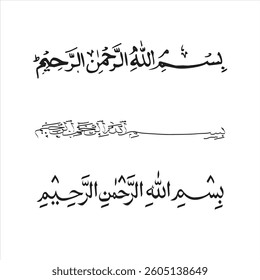 بِسْمِ اللّٰهِ الرَّحْمٰنِ الرَّحِيْمِ
بسم الله الرحمن الرحيم
بِسْمِ اللّٰهِ الرَّحْمٰنِ الرَّحِيْمِ
shutterstock.com · 2605138649